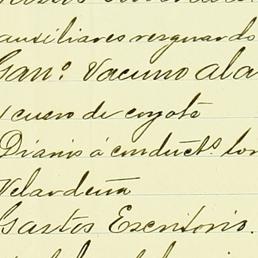 auxiliares resguardo
Gan.º Vacuno a la
1 cuero de coyote
Diario á conduct.s
Velardeña
Gastos Escritorio.